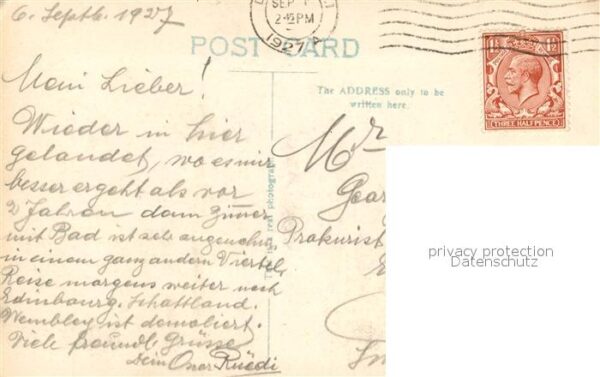 6. Septb. 1927
SEP
2-15 PM
1927
POST CARD
THREE HALF PENCE
The ADDRESS only to be
written here.
Mein Lieber!
Wieder in hier
gelandet, wo es mir
besser ergeht als vor
2 Jahren dann Zimmer
mit Bad ist sehr angenehm
in einem ganz andern Viertel,
Reise morgens weiter nach
Edinbourg. Schattland.
Wembley ist demoliert.
Viele freundl. Grüsse
Dein Oscar Rüedi
real photograph
Mr
Geor
Prokurist
privacy protection
Datenschutz